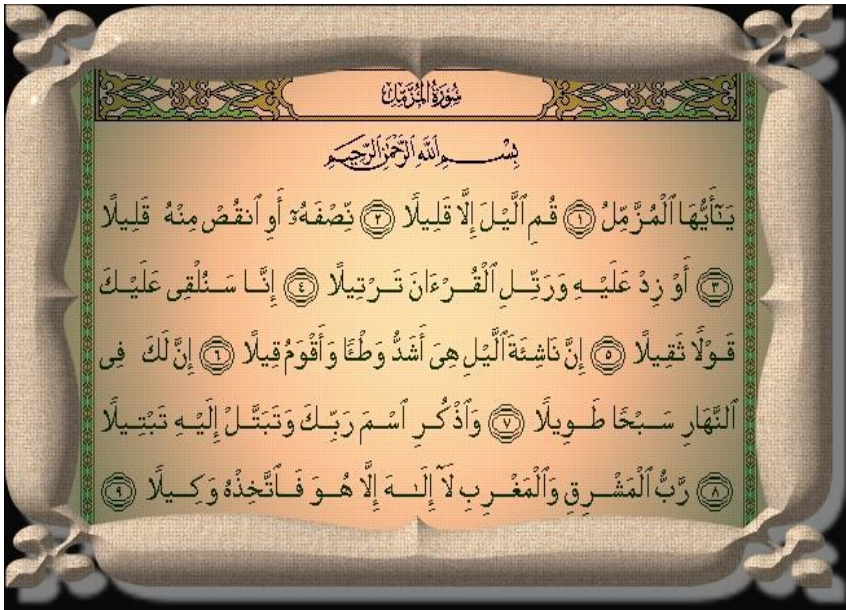 سُورَةُ المُزَّمِّل
بِسْمِ ٱللَّهِ ٱلرَّحْمَٰنِ ٱلرَّحِيمِ
يَـٰٓأَيُّهَا ٱلْمُزَّمِّلُ ١ قُمِ ٱلَّيْلَ إِلَّا قَلِيلًا ٢ نِّصْفَهُۥٓ أَوِ ٱنقُصْ مِنْهُ قَلِيلًا
٣ أَوْ زِدْ عَلَيْهِ وَرَتِّلِ ٱلْقُرْءَانَ تَرْتِيلًا ٤ إِنَّا سَنُلْقِى عَلَيْكَ
قَوْلًا ثَقِيلًا ٥ إِنَّ نَاشِئَةَ ٱلَّيْلِ هِىَ أَشَدُّ وَطْـًٔا وَأَقْوَمُ قِيلًا ٦ إِنَّ لَكَ فِى
ٱلنَّهَارِ سَبْحًا طَوِيلًا ٧ وَٱذْكُرِ ٱسْمَ رَبِّكَ وَتَبَتَّلْ إِلَيْهِ تَبْتِيلًا
٨ رَّبُّ ٱلْمَشْرِقِ وَٱلْمَغْرِبِ لَآ إِلَـٰهَ إِلَّا هُوَ فَٱتَّخِذْهُ وَكِيلًا ٩